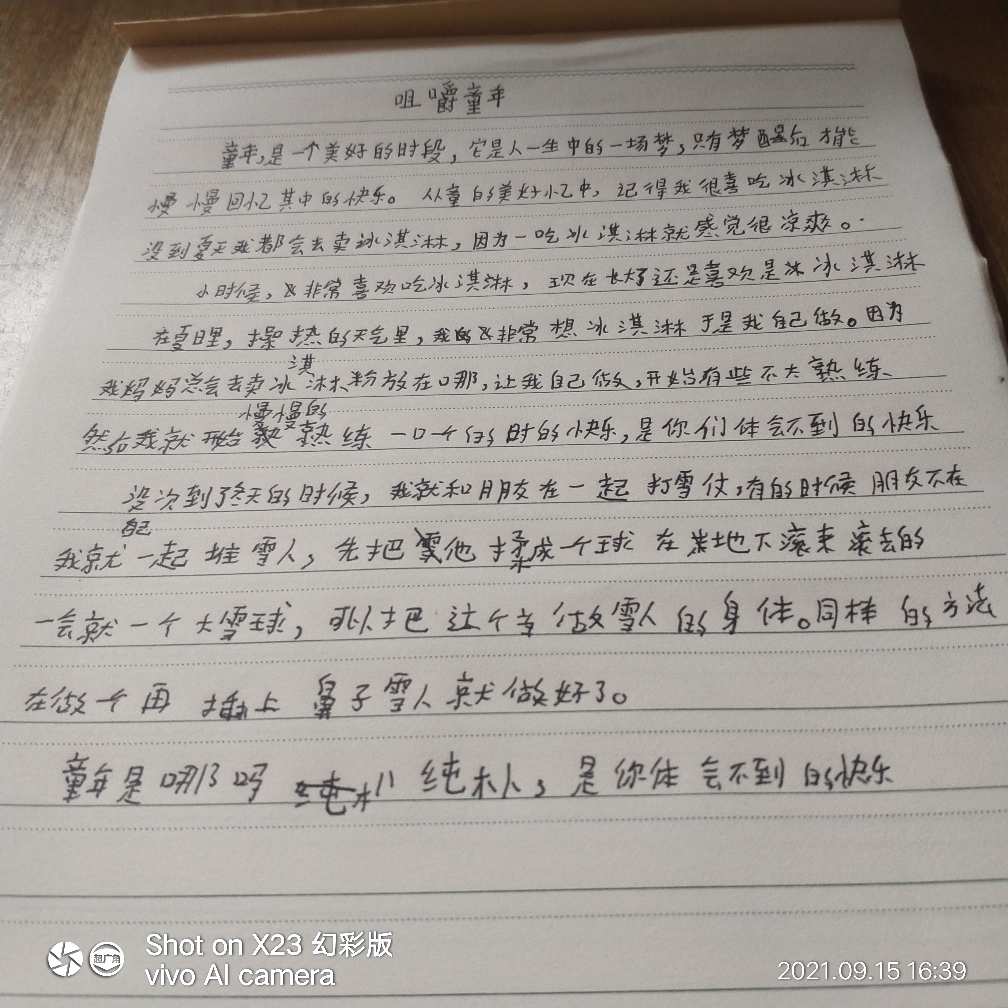 咀嚼童年
童年,是一个美好的时段，它是人一生中的一场梦,只有梦醒后才能
慢慢回忆其中的快乐。从童的美好忆中，记得我很喜吃冰淇淋
没到夏天我都会去卖冰淇淋，因为一吃冰淇淋就感觉很凉爽。
小时候，我非常喜欢吃冰淇淋，现在长大了还是喜欢是冰淇淋
在夏日里，操热的天气里，我非常想冰淇淋于是我自己做。因为
我妈妈总会去卖冰淇淋粉放在那,让我自己做,开始有些不太熟练
然后我就开始慢慢的熟练一口个的时的快乐,是你们体会不到的快乐
没次到了冬天的时候，我就和朋友在一起打雪仗,有的时候朋友不在
我就自己一起堆雪人，先把雪他揉成一个球在地下滚来滚去的
一会就一个大雪球，可以把这个当做雪人的身体。同样的方法
在做一个再插上鼻子雪人就做好了。
童年是哪吗纯朴,是你体会不到的快乐
Shot on X23 幻彩版
超广角
vivo AI camera
2021.09.15 16:39